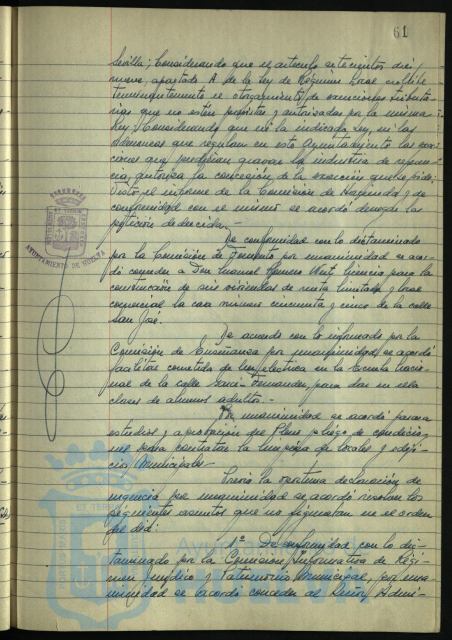 61
Sevilla; Considerando que el artículo setecientos diez
nueve, apartado A de la Ley de Régimen Local prohibe
terminantemente el otorgamiento de exenciones tributa-
rias que no estén previstas y autorizadas por la misma
Ley; Considerando que ni la indicada Ley, ni las
Ordenanzas que regulan en este Ayuntamiento las exac-
ciones que pudieran gravar la industria de
autoriza la concesión de la exención que se pide:
Visto el informe de la Comisión de Hacienda y de
conformidad con el mismo se acordó denegar la
petición deducida.
De conformidad con lo dictaminado
por la Comisión de Fomento por unanimidad se acor-
dó conceder a Don Manuel Romero licencia para la
construcción de seis viviendas de renta limitada y local
comercial la casa número cincuenta y cinco de la calle
San José.
De acuerdo con lo informado por la
Comisión de Enseñanza por unanimidad se acordó
facilitar cometida de luz eléctrica en la Escuela Nacio-
nal de la calle Sanci-Fernandez, para dar en ella
clases de alumnos adultos.-
Por unanimidad se acordó pasar a
estudios y aprobación del Pleno pliego de condicio-
nes para contratar la limpieza de locales y edifi-
cios Municipales.
Previa la oportuna declaración de
urgencia por unanimidad se acordó resolver los
siguientes asuntos que no figuraban en el orden
del día:
1º De conformidad con lo dic-
taminado por la Comisión Informativa de Régi-
men Jurídico y Patrimonio Municipal, por una-
nimidad se acordó conceder al Señor Admi-
AYUNTAMIENTO DE HUELVA